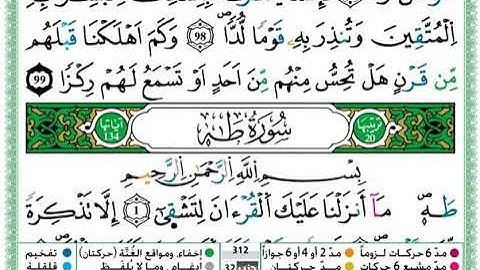 اِ۬لْمُتَّقِينَ وَتُنذِرَ بِهِۦ قَوْماٗ لُّدّاٗۖ 98 وَكَمَ اَهْلَكْنَا قَبْلَهُم
مِّن قَرْنٍ هَلْ تُحِسُّ مِنْهُم مِّنَ اَحَدٍ اَوْ تَسْمَعُ لَهُمْ رِكْزاٗۖ 99
آيَاتُهَا 134 سُورَةُ طَهَ تَرْتِيبُهَا 20
بِسْمِ اِ۬للَّهِ اِ۬لرَّحْمَٰنِ اِ۬لرَّحِيمِ
طَهَۖ مَآ أَنزَلْنَا عَلَيْكَ اَ۬لْقُرْءَانَ لِتَشْق۪يٰٓ 1 إِلَّا تَذْكِرَةٗ
مدّ 6 حركات لزوماً مدّ 2 أو 4 أو 6 جوازاً 312 إخفاء، ومواقع الغُنَّة (حركتان) تفخيم
مدّ مشبع 6 حركات مدّ حركتان إدغام، وما لا يُلفَظ قلقلة